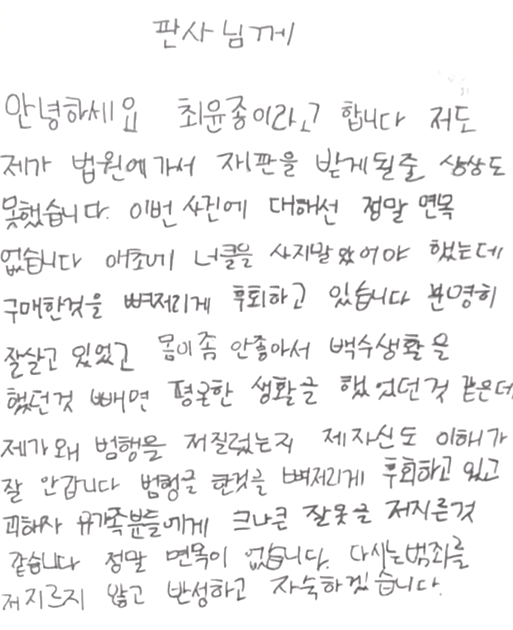 판사님께
안녕하세요 최윤종이라고 합니다 저도
제가 법원에가서 재판을 받게될줄 상상도
못했습니다. 이번 사건에 대해선 정말 면목
없습니다 애초에 너클을 사지말았어야 했는데
구매한것을 뼈저리게 후회하고 있습니다 분명히
잘살고 있었고 몸이좀 안좋아서 백수생활을
했던것 빼면 평균한 생활글 했었던것 같은데
제가왜 범행을 저질렀는지 제자신도 이해가
잘 안갑니다 범행글 한것글 뼈저리게 후회하고 있고
피해자 유가족분들에게 크나큰 잘못글 저지른것
같습니다 정말 면목이 없습니다. 다시는범죄를
저지르지 않고 반성하고 자숙하겠습니다.